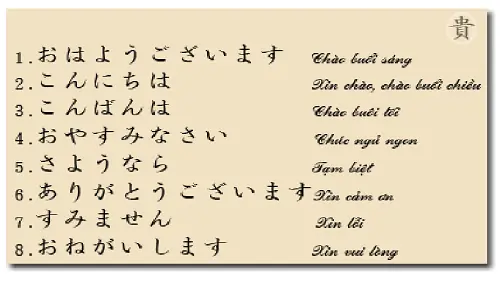 貴
1.おはようございます Chào buổi sáng
2.こんにちは Xin chào, chào buổi chiều
3.こんばんは Chào buổi tối
4.おやすみなさい Chúc ngủ ngon
5.さようなら Tạm biệt
6.ありがとうございます Xin cảm ơn
7.すみません Xin lỗi
8.おねがいします Xin vui lòng